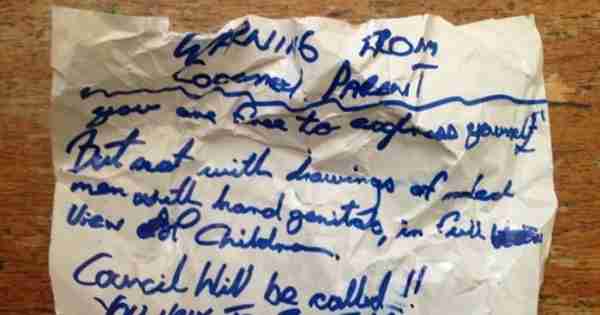 WARNING FROM
PARENT
you are free to express yourself
But not with drawings of naked
men with hand genitals, in full
View of Children.
Council Will be called !!
YOU HAVE